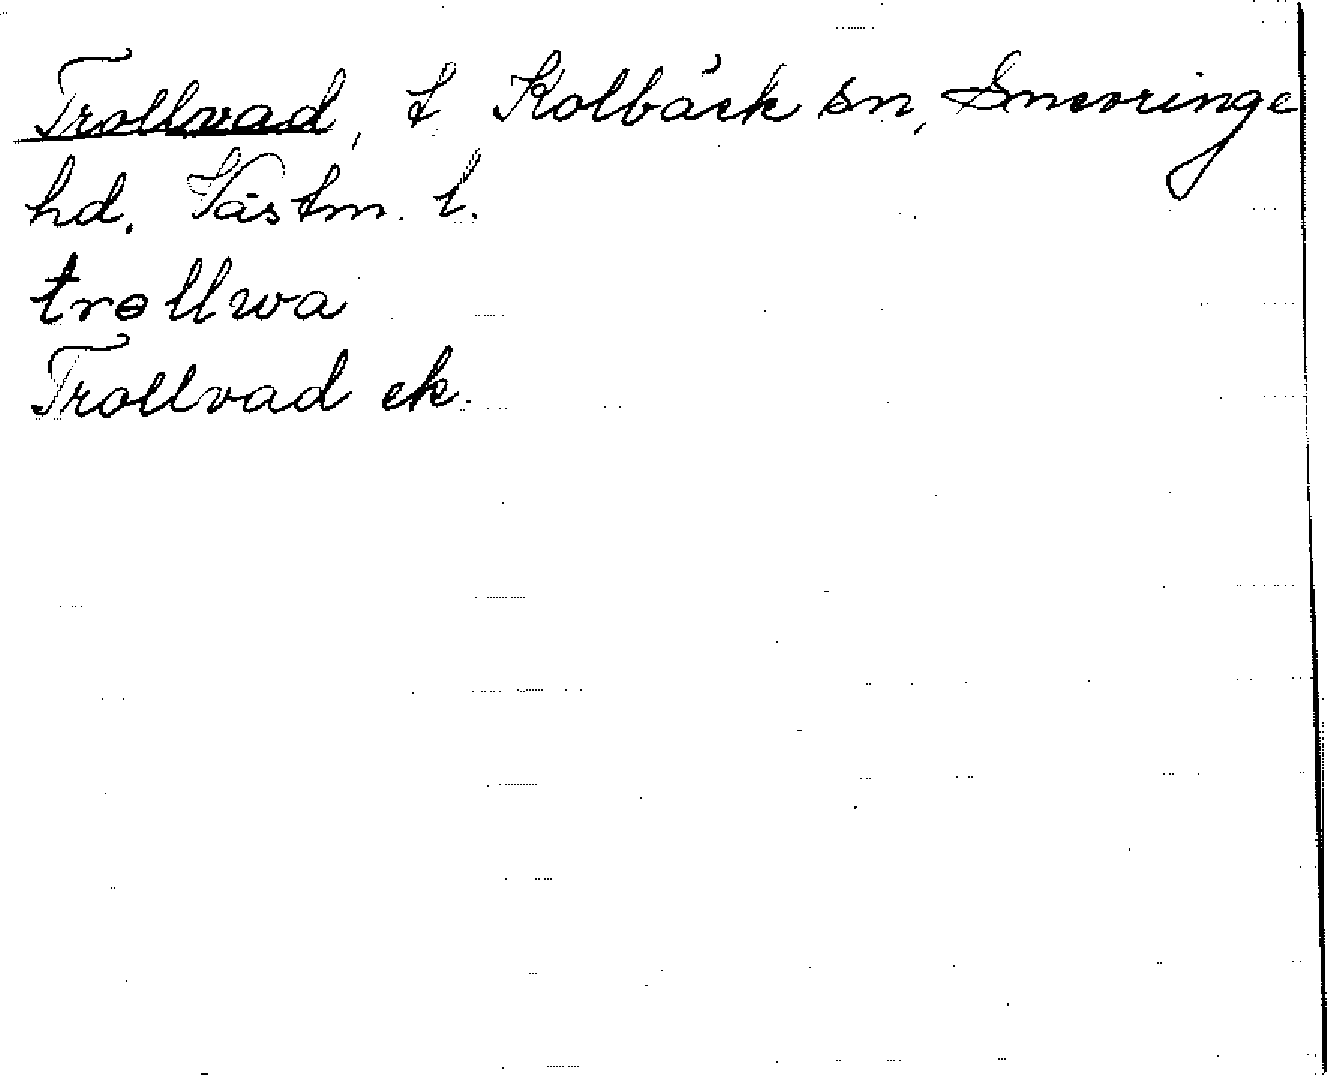 Trollvad, t Kolbäck sn, Snevringe
hd. Västm. l.
trollwa
Trollvad ek.